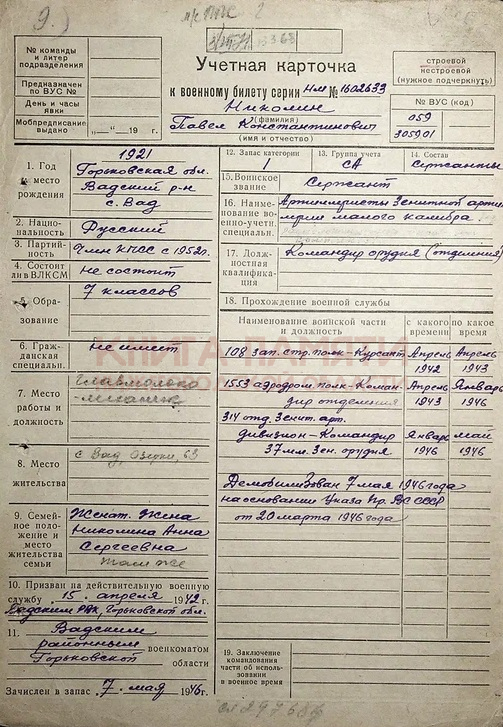 9.)
№ команды и литер подразделения
Предназначен по ВУС №
День и часы явки
Мобпредписание выдано „ “ 19 г.
Учетная карточка
к военному билету серии НМ № 1602633
Николин
(фамилия)
Павел Константинович
(имя и отчество)
строевой
нестроевой
(нужное подчеркнуть)
№ ВУС (код)
059
305901
1. Год и место рождения
1921
Горьковская обл.
Вадский р-н
с. Вад
2. Национальность
Русский
3. Партийность
Член КПСС с 1952г.
4. Состоит ли в ВЛКСМ
Не состоит
5. Образование
7 классов
6. Гражданская специальн.
Не имеет
7. Место работы и должность
8. Место жительства
с Вад, Озерки, 63
9. Семейное положение и место жительства семьи
Женат. Жена
Николина Анна
Сергеевна
Там же
10. Призван на действительную военную
службу 15. апреля 1942 г.
Вадским РВК, Горьковской обл.
11. Вадским
районным военкоматом
Горьковской области
Зачислен в запас 7. мая 1946г.
12. Запас категории
1
13. Группа учета
СА
14. Состав
Сержанты
15. Воинское звание
Сержант
16. Наименование военно-учетн. специальн.
Артиллеристы зенитной артиллерии малого калибра
17. Должностная квалификация
Командир орудия (отделения)
18. Прохождение военной службы
Наименование воинской части и должность
с какого времени
по какое время
108 зап. стр. полк - Курсант Апрель 1942 Апрель 1943
1553 аэродром. полк - Командир отделения Апрель 1943 Январь 1946
314 отд. Зенит. арт.
дивизион - Командир Январь 1946 май 1946
37 мм. Зен. орудия
Демобилизован 7 мая 1946 года
на основании Указа Пр. ВС СССР
от 20 марта 1946 года
19. Заключение командования части об использовании в военное время
КНИГА ПАМЯТИ